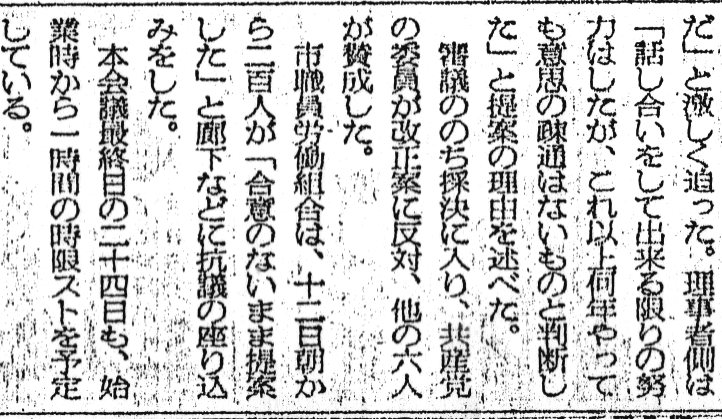 だ」と激しく迫った。理事者側は
「話し合いをして出来る限りの努
力はしたが、これ以上何年やって
も意思の疎通はないものと判断し
た」と提案の理由を述べた。
審議ののち採決に入り、共産党
の委員が改正案に反対、他の六人
が賛成した。
市職員労働組合は、十二日朝か
ら二百人が「合意のないまま提案
した」と廊下などに抗議の座り込
みをした。
本会議最終日の二十四日も、始
業時から一時間の時限ストを予定
している。